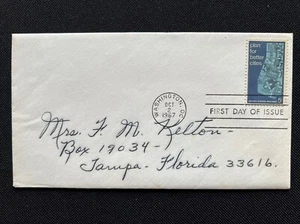 plan
for
better
cities
WASHINGTON, DC
OCT
2
1967
FIRST DAY OF ISSUE
Mrs. F. M. Kelton-
Box 19034-
Tampa-Florida 33616.